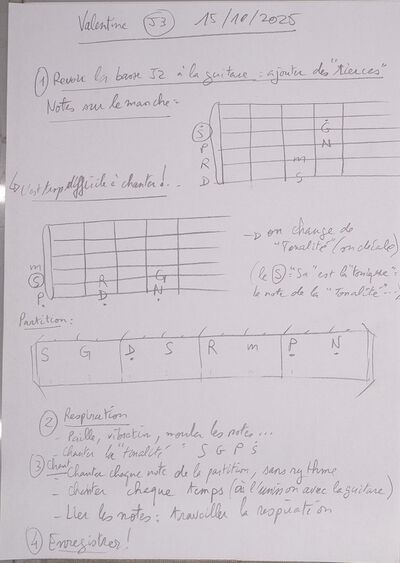 Valentine J3 15/10/2025
① Revoir la basse J2 à la guitare : ajouter des "tierces"
Notes sur le manche =
Ṡ Ġ
P N
R m
D S
↳ C'est trop difficile à chanter !..
→ on change de
"Tonalité" (on décale)
(le Ⓢ : "Sa" est la "tonique" =
la note de la "Tonalité"...)
m
Ⓢ R G
P̣ Ḍ Ṇ
Partition :
S G Ḍ S R m P̣ Ṇ
② Respiration
- Paille, vibration, monter les notes...
- Chanter la "tonalité" S G P Ṡ
③ Chant
- Chanter chaque note de la partition, sans rythme
- Chanter chaque temps (à l'unisson avec la guitare)
- Lier les notes : travailler la respiration
④ Enregistrer !